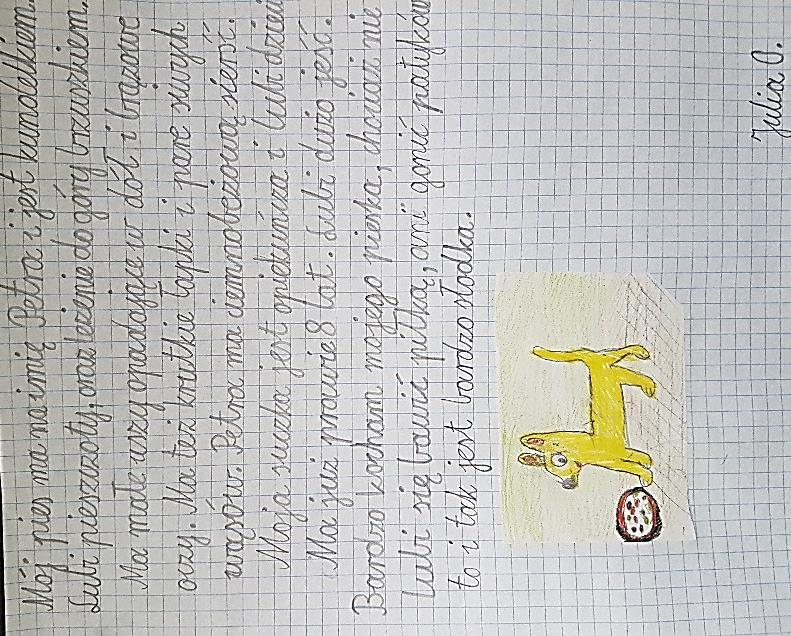 Mój pies ma na imię Petra i jest kundelkiem.
Lubi pieszczoty, oraz leżenie do góry brzuszkiem.
Ma małe uszy opadające w dół i brązowe
oczy. Ma też krutkie łapki i parę siwych
wąsów. Petra ma ciemnobeżową sierść.
Moja suczka jest opiekuńcza i lubi dzieci
Ma już prawie 8 lat. Lubi dużo jeść.
Bardzo kocham mojego pieska, chociaż nie
lubi się bawić piłką, ani gonić patyków
to i tak jest bardzo słodka.
Julia O.